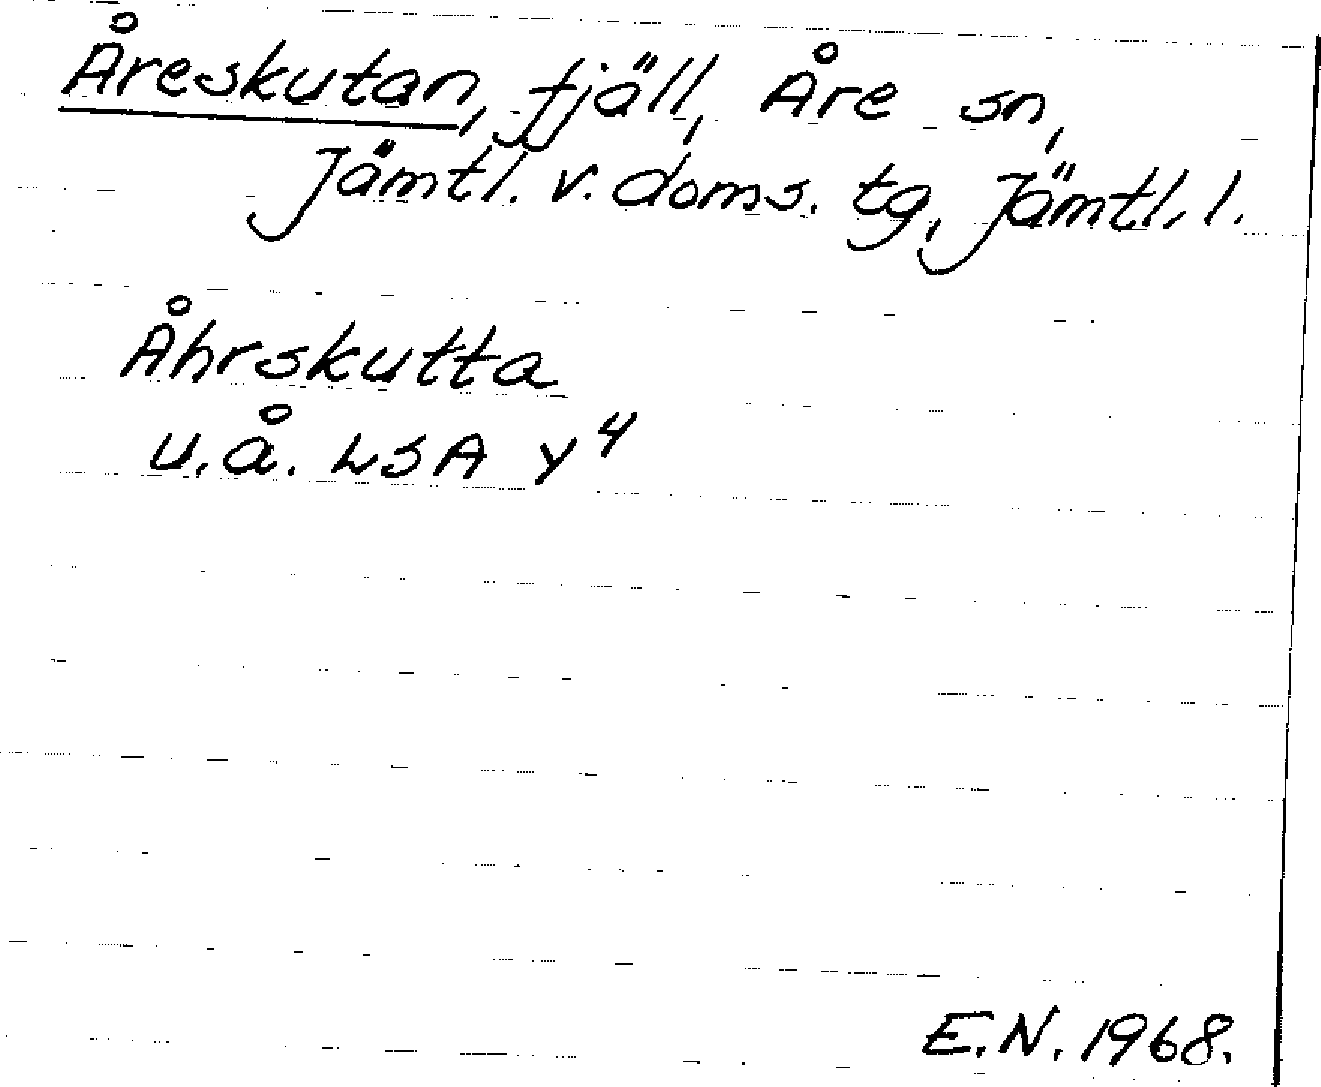 Åreskutan, fjäll, Åre sn,
Jämtl. v. doms. tg, Jämtl. l.
Åhrskutta
u.å. LSA Y⁴
E.N. 1968.